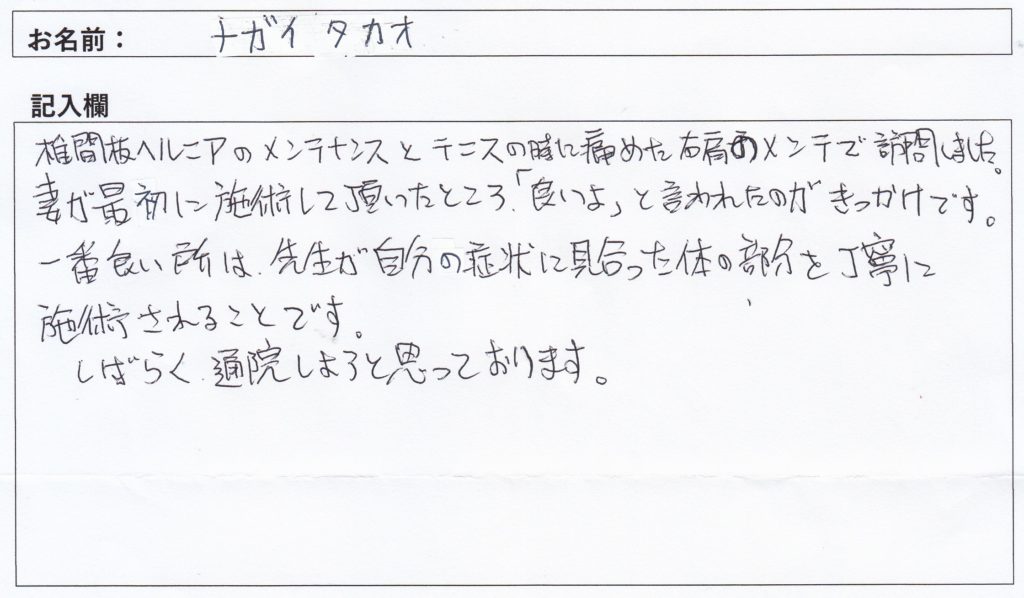 お名前： ナガイ タカオ
記入欄
椎間板ヘルニアのメンテナンスとテニスの時に痛めた右肩のメンテで訪問しました。
妻が最初に施術して頂ったところ、「良いよ」と言われたのがきっかけです。
一番良い所は、先生が自分の症状に見合った体の部分を丁寧に
施術されることです。
しばらく、通院しようと思っております。